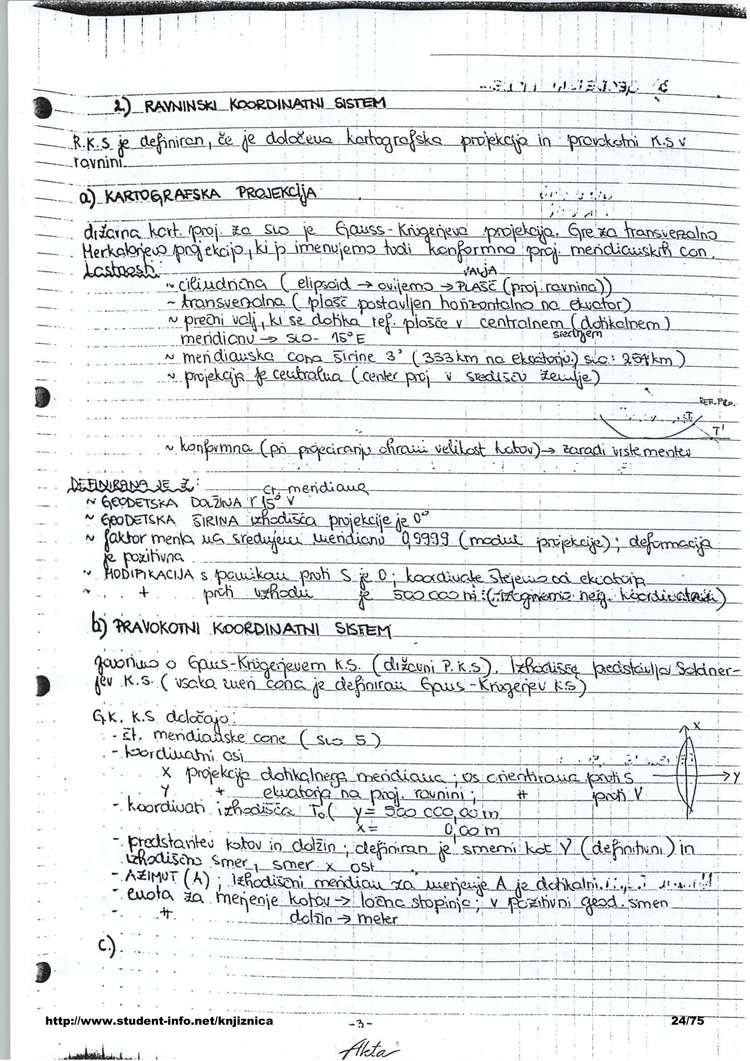 2) RAVNINSKI KOORDINATNI SISTEM
R.K.S je definiran, če je določena kartografska projekcija in pravokotni K.S v
ravnini.
a) KARTOGRAFSKA PROJEKCIJA
državna kart. proj. za SLO je Gauss-Krügerjeva projekcija. Gre za transverzalno
Merkatorjevo projekcijo, ki jo imenujemo tudi konformna proj. meridianskih con.
Lastnosti:
VALJA
~ cilindrična (elipsoid → ovijemo → PLAŠČ (proj. ravnina))
~ transverzalna (plašč postavljen horizontalno na ekvator)
~ prečni valj, ki se dotika ref. plošče v centralnem (dotikalnem)
srednjem
meridianu → SLO- 15°E
~ meridianska cona širine 3° (333km na ekvatorju) SLO: 254km)
~ projekcija je centralna (center proj v središču Zemlje)
REF. PLO.
T
T'
~ konformna (pri projeciranju ohrani velikost kotov) → zaradi vrste mentev
DEFINIRANA JE Z:
cr. meridiana
~ GEODETSKA DOLŽINA 15° V
~ GEODETSKA ŠIRINA izhodišča projekcije je 0°
~ faktor merila na srednjem meridianu 0,9999 (modul projekcije); deformacija
je pozitivna
~ MODIFIKACIJA s pomikom proti S je 0; koordinate štejemo od ekvatorja
~ + proti vzhodu je 500 000 m: (izognemo neg. koordinatam)
b) PRAVOKOTNI KOORDINATNI SISTEM
govorimo o Gaus-Krügerjevem K.S. (državni P.K.S). Izhodišče predstavlja Soldner-
jev K.S. (vsaka mer. cona je definirau Gaus-Krugerjev K.S)
G.K. K.S določajo:
- št. meridianske cone (SLO 5)
- koordinatni osi
X projekcija dotikalnega meridiana; os orientirana proti S
Y + ekvatorja na proj. ravnini; + proti V
X
Y
- koordinati izhodišča T₀ ( y = 500 000,00 m
x = 0,00 m
- predstavitev kotov in dolžin; definiran je smerni kot ν (definitivni) in
izhodiščno smer, smer x osi
- AZIMUT (A); Izhodiščni meridian za merjenje A je dotikalni
- enota za merjenje kotov → ločna stopinja; v pozitivni geod. smeri
- + dolžin → meter
c).
http://www.student-info.net/knjiznica
-3-
24/75
Akta